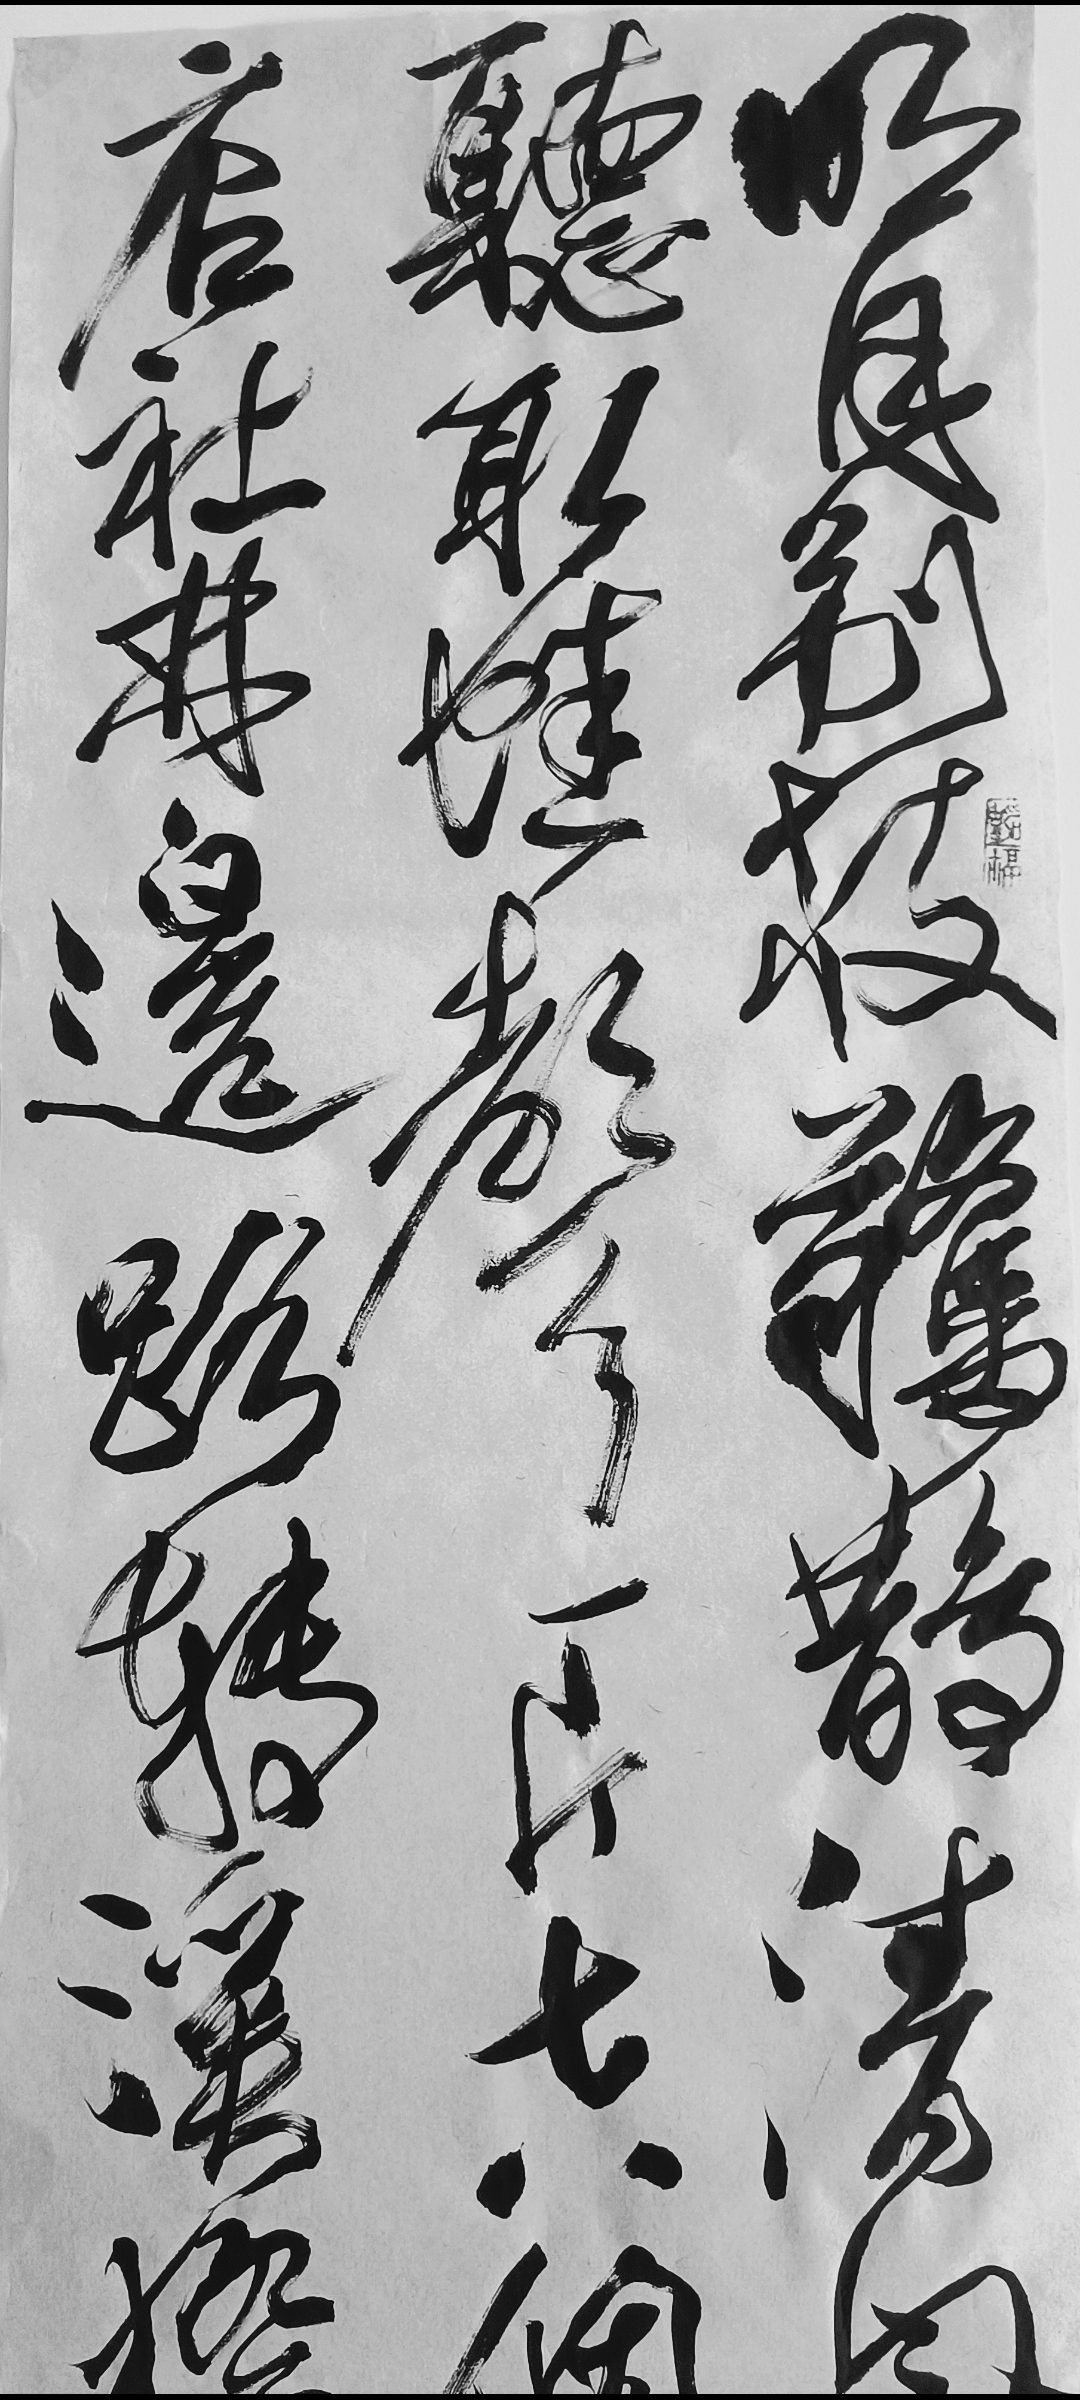 明月別枝驚鵲清風
聽取蛙聲一片七八個
店社林邊路轉溪橋